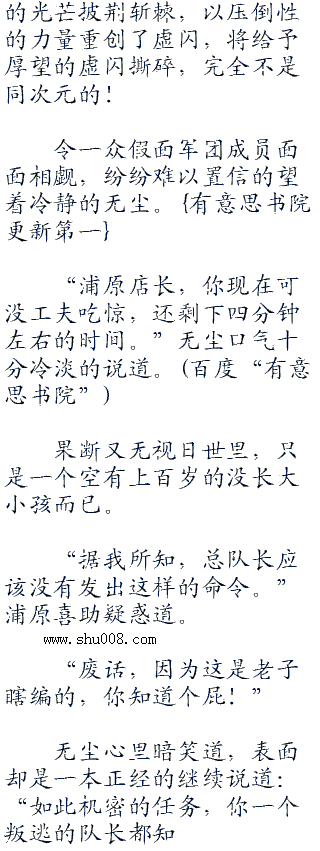 的光芒披荆斩棘，以压倒性
的力量重创了虚闪，将给予
厚望的虚闪撕碎，完全不是
同次元的！
令一众假面军团成员面
面相觑，纷纷难以置信的望
着冷静的无尘。{有意思书院
更新第一}
“浦原店长，你现在可
没工夫吃惊，还剩下四分钟
左右的时间。”无尘口气十
分冷淡的说道。(百度“有意
思书院”)
果断又无视日世里，只
是一个空有上百岁的没长大
小孩而已。
“据我所知，总队长应
该没有发出这样的命令。”
浦原喜助疑惑道。
www.shu008.com
“废话，因为这是老子
瞎编的，你知道个屁！”
无尘心里暗笑道，表面
却是一本正经的继续说道：
“如此机密的任务，你一个
叛逃的队长都知